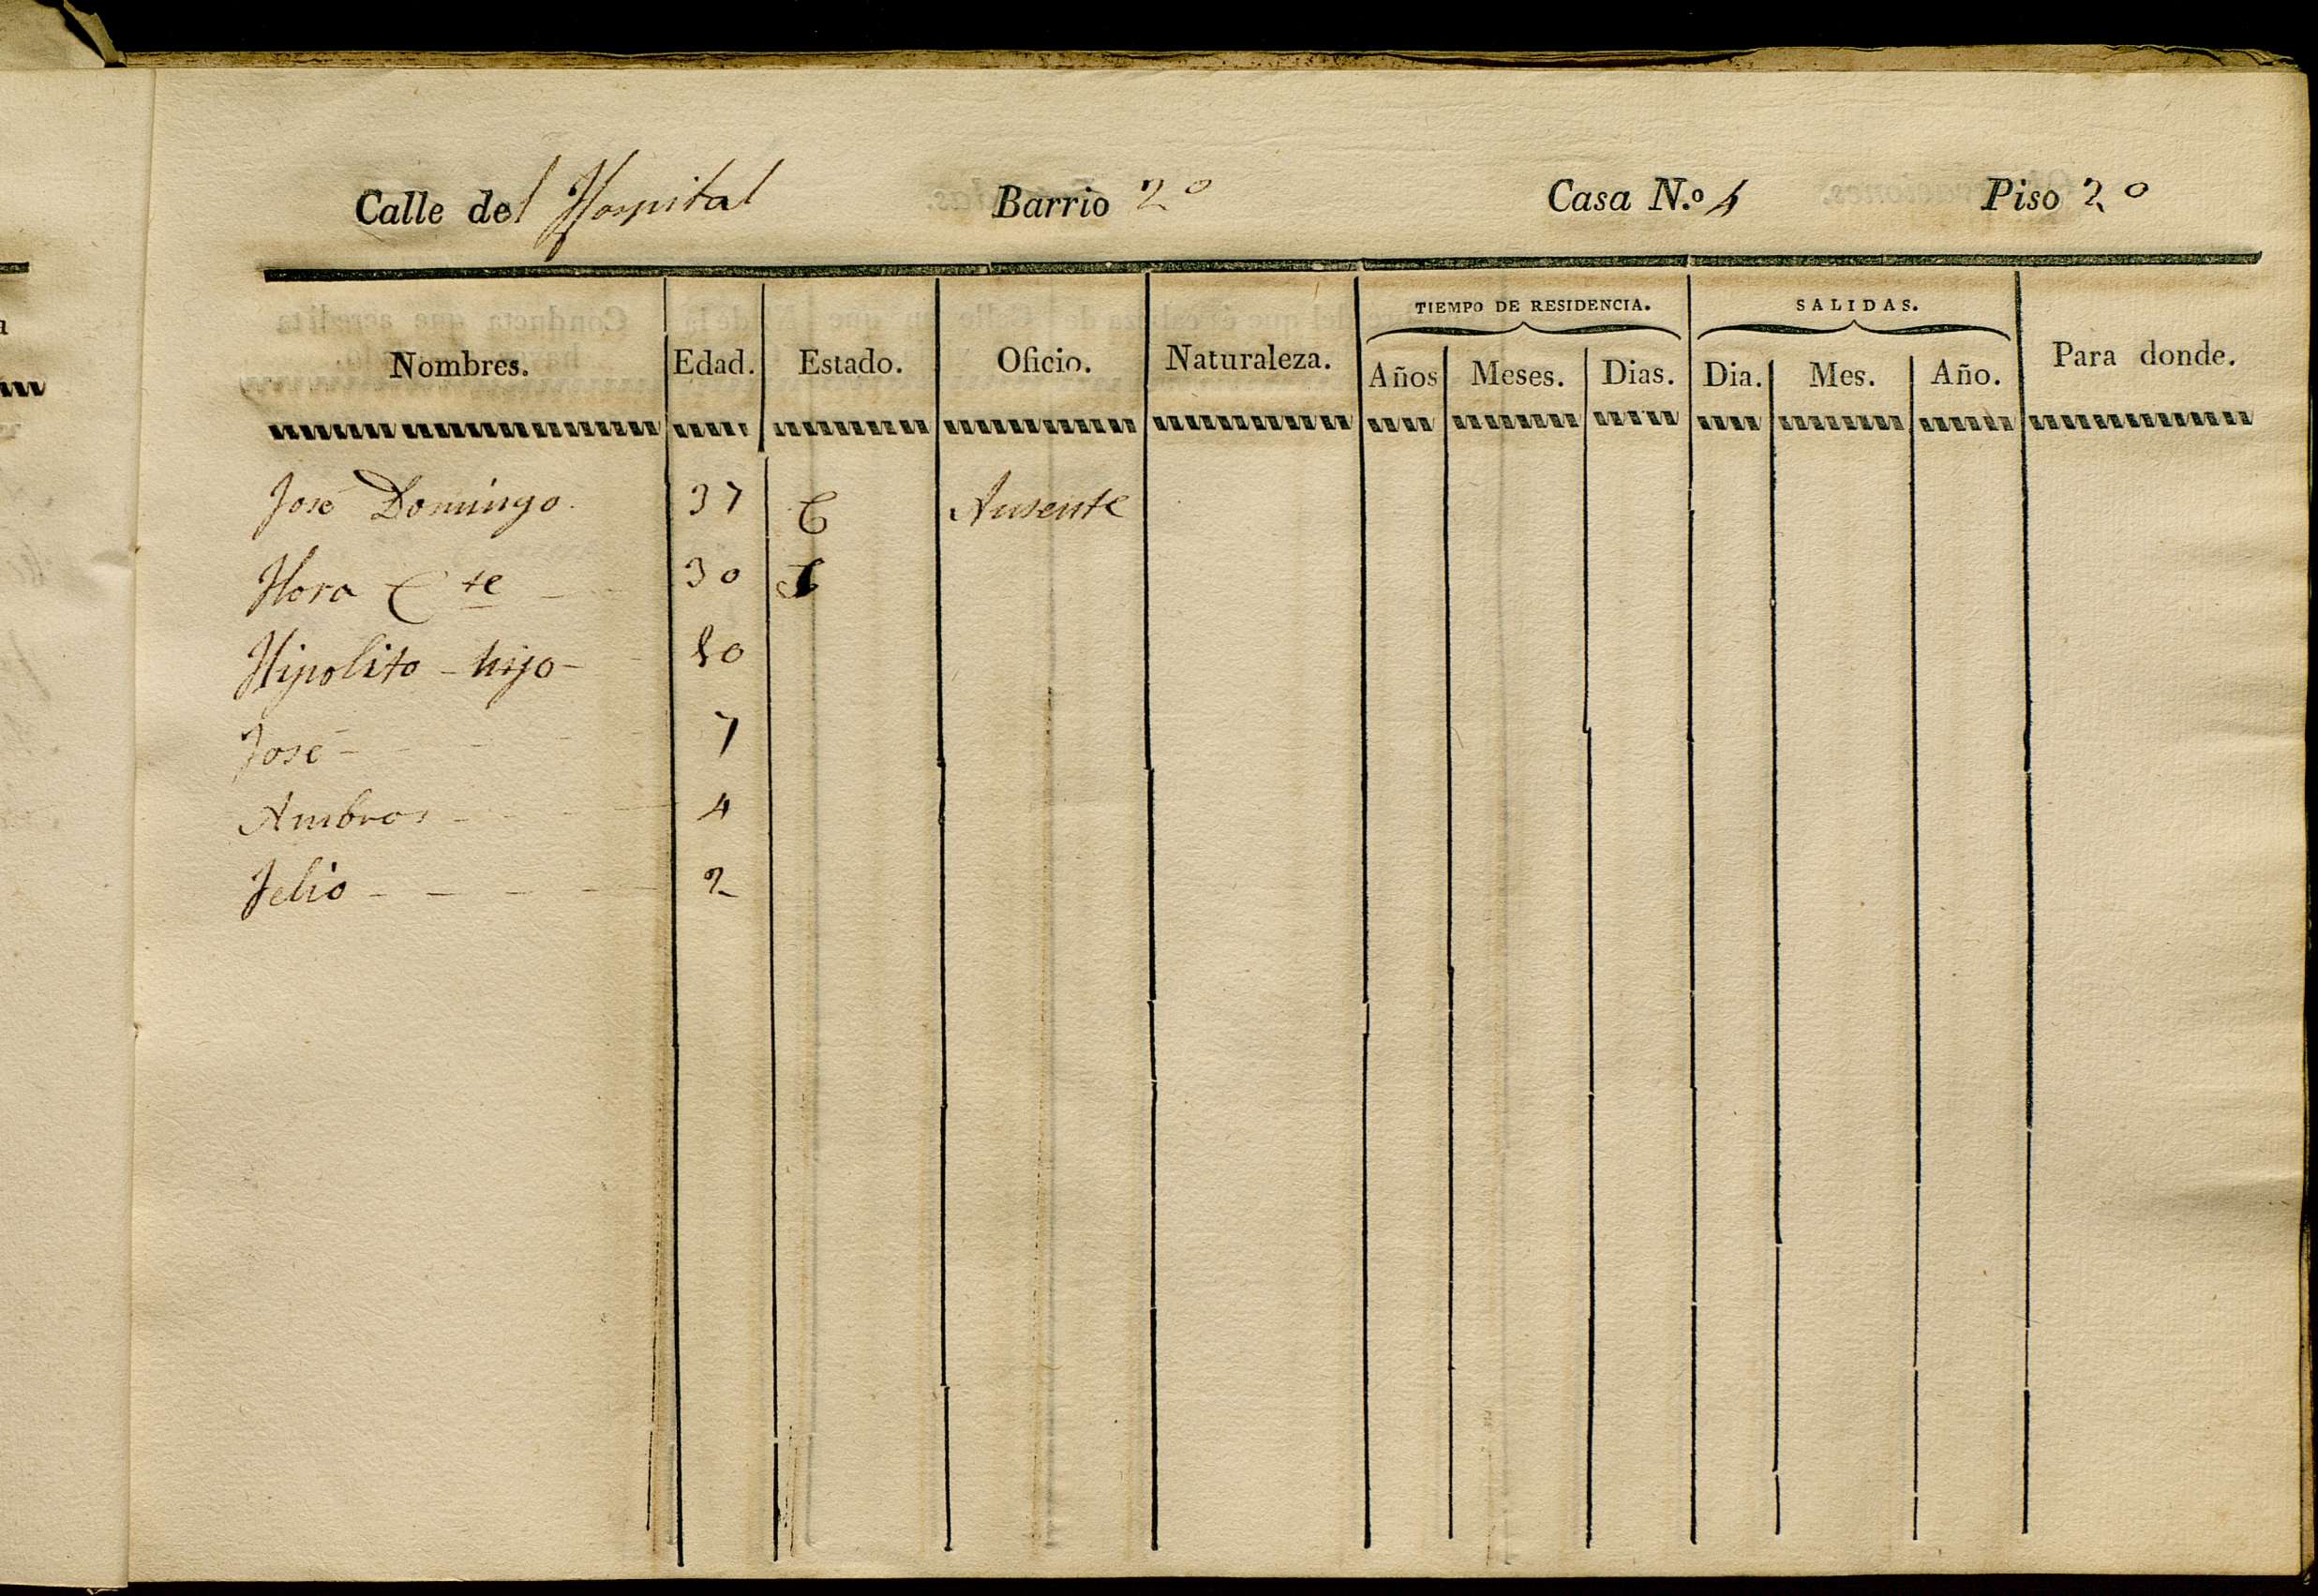 Calle del Hospital Barrio 2º Casa N.º 4 Piso 2º
TIEMPO DE RESIDENCIA. SALIDAS.
Nombres. Edad. Estado. Oficio. Naturaleza. Años Meses. Dias. Dia. Mes. Año. Para donde.
José Domingo. 37 C Ausente
30
Hipolito - hijo - 10
José - 7
Ambros 4
2